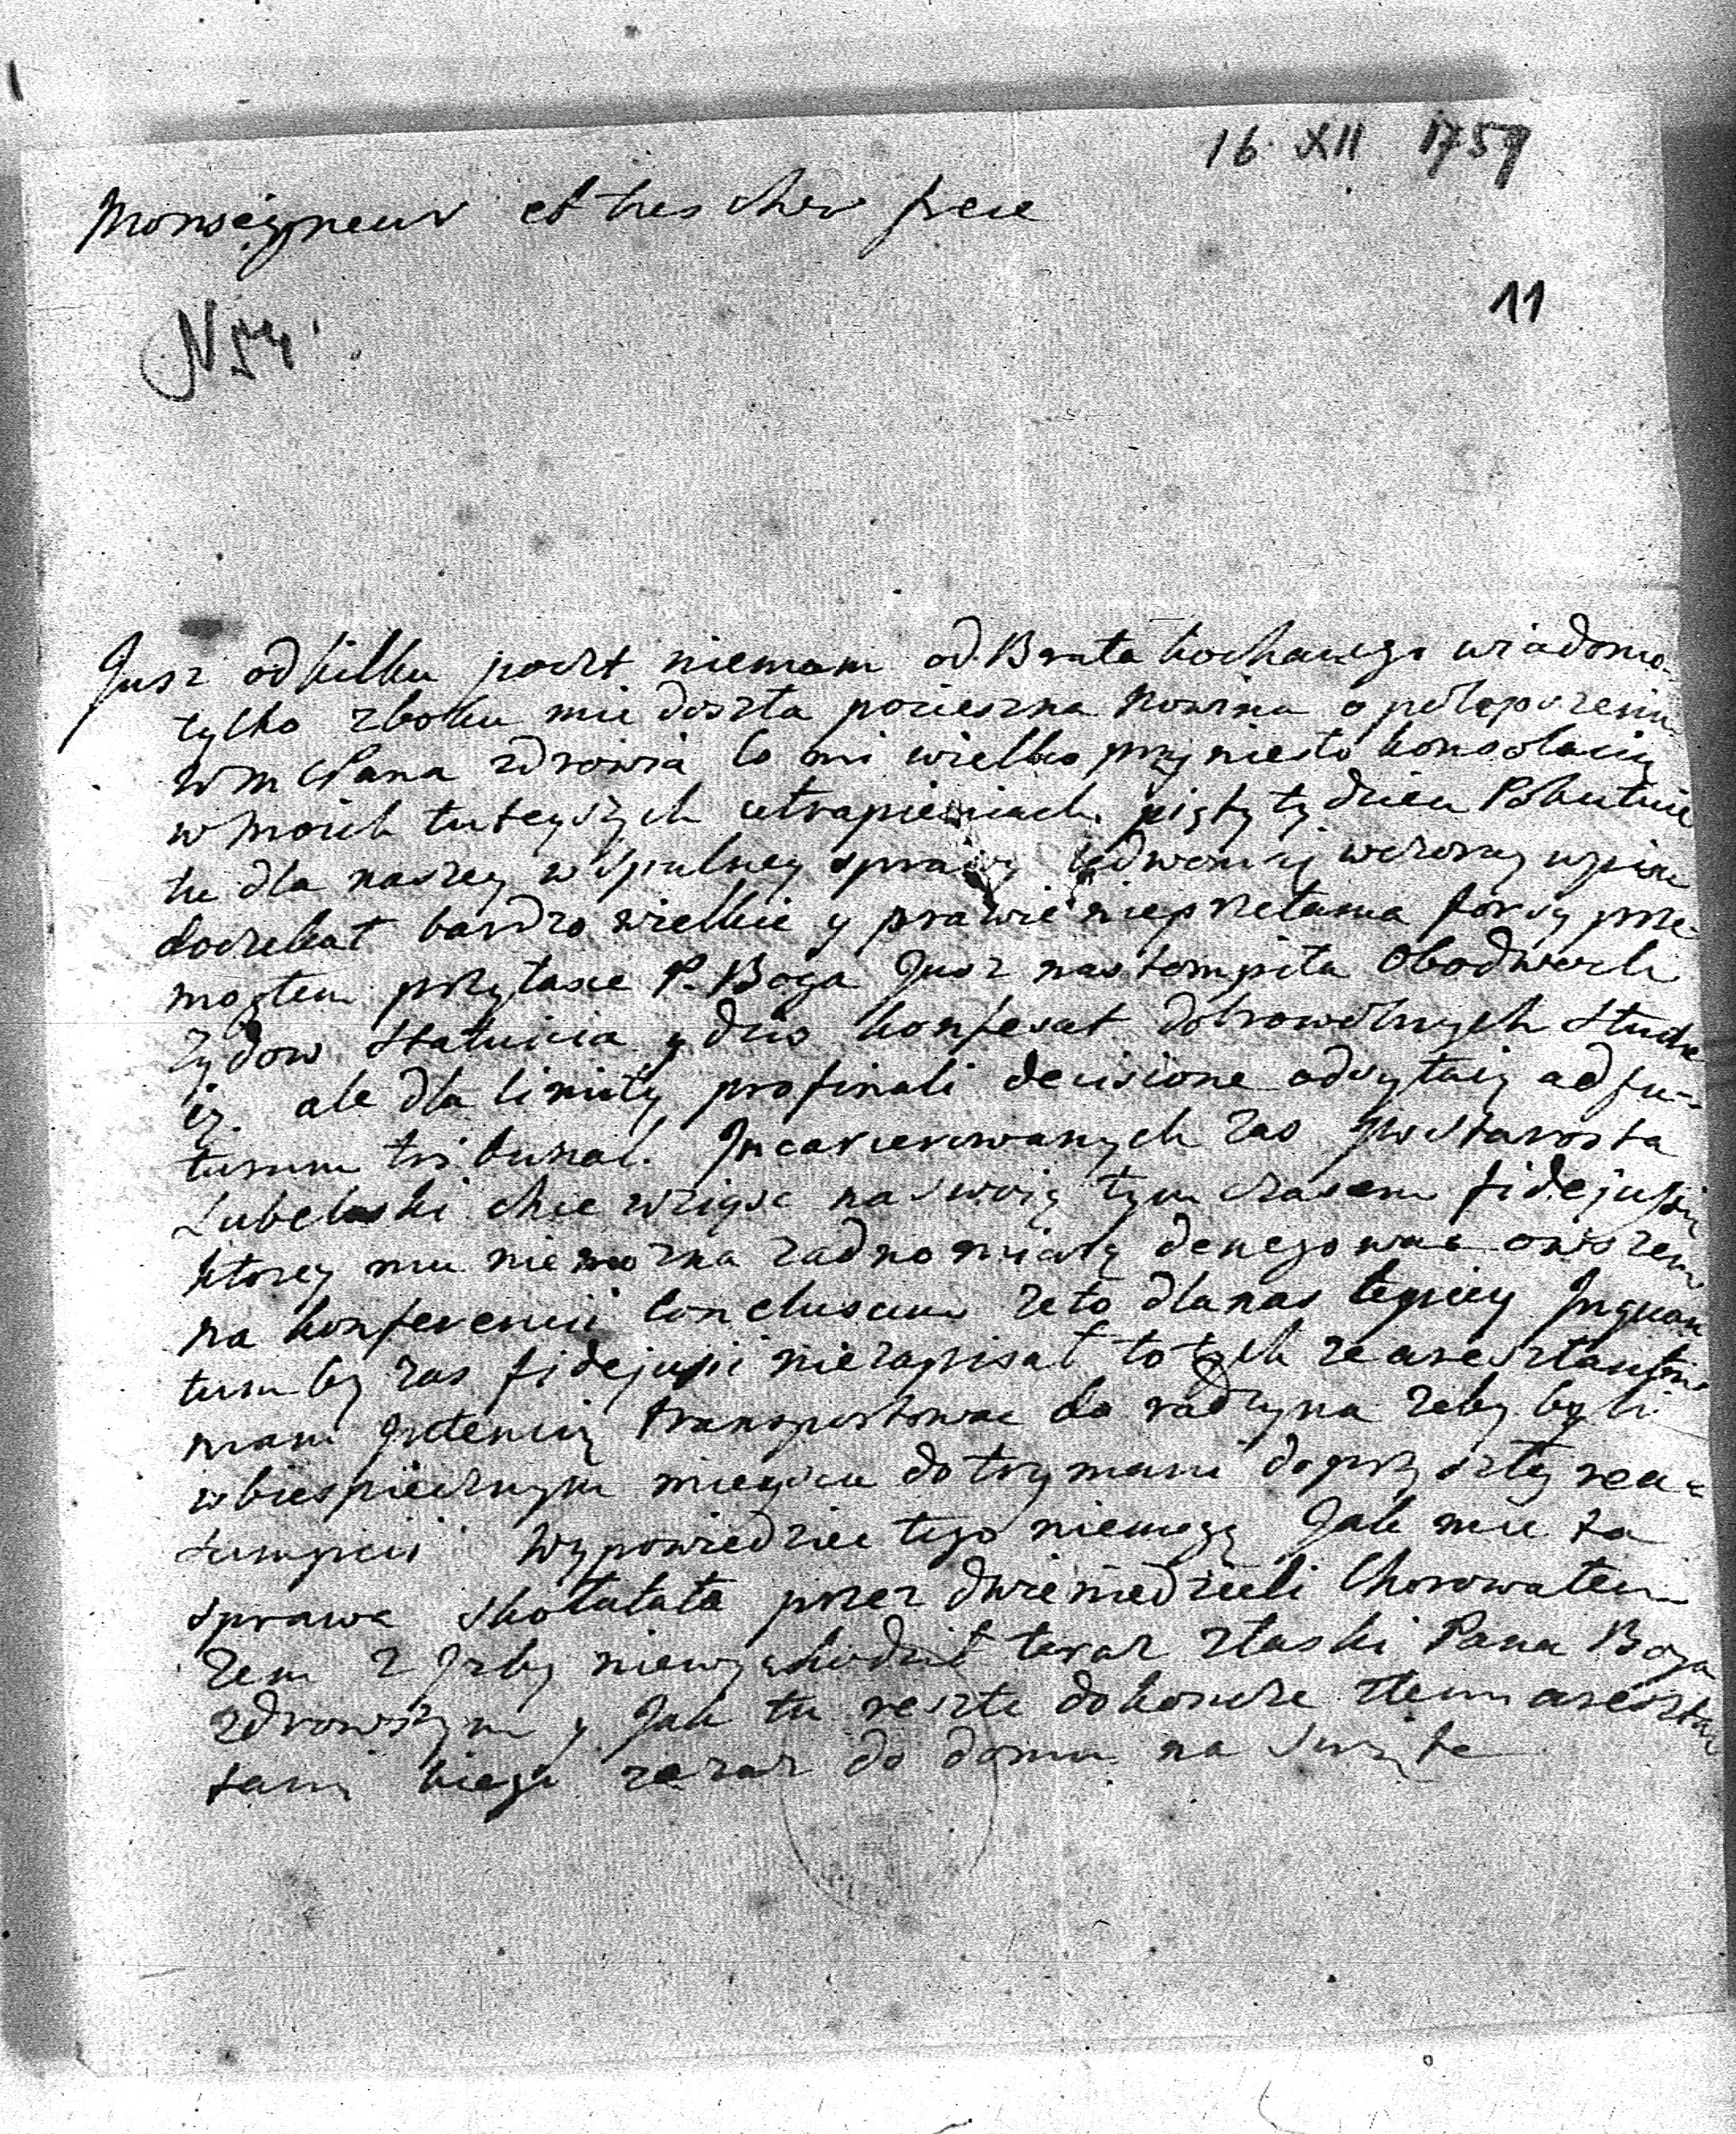 16. XII 1757
Monseigneur et tres cher frere
11
N 54.
Jusz od kilku poczt niemam od Brata kochanego wiadomo
tylko zboku mie doszła pocieszna Nowina o polepszeniu
WM Pana zdrowia co mi wielko przyniesło konsolacią
w moich tuteyszych utrapieniach. piąty tydzien Pokutuie
tu dla naszey wspulney sprawy ledwom się wczoray wpisu
doczekał bardzo wielkie y prawie nieprzełama forsy prze-
mogłem przy łasce P. Boga Jusz nastompiła Obodwoch
Zydow statuicia y dzis konfesat dobrowolnych słucha
ią. ale dla limity pro finali decisione odsyłaią ad fu-
turum tribunal. Incarcerowanych zas JW Starosta
Lubelski chce wziąsc na swoią tym czasem fidejusią
ktorey mu niemozna zadno miarą denegowac owszem
na konferencii conclusum ze to dla nas lepiey Inquan
tum by zas fidejusii niezapisał to tych zearesztantow
mam Jntencią transportowac do radzyna zeby byli
w biespiecznym mieyscu dotrzymani do przyszłey rea-
sumpcii Wypowiedziec tego niemogę Jak mie ta
sprawa skołatała przez dwie niedzieli Chorowałem
zem z Jzby niewychodził teraz z łaski Pana Boga
zdrowszym y Jak tu reszte dokoncze z temi areszta
tami biegę zaraz do domu na Swięta